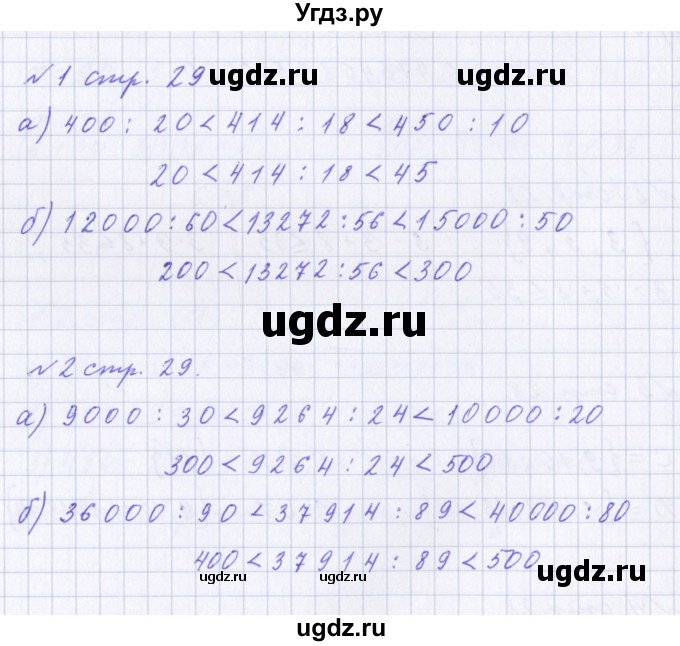 Угдз.ру
№1 стр. 29
ugdz.ru ugdz.ru
а) 400 : 20 < 414 : 18 < 450 : 10
20 < 414 : 18 < 45
б) 12000 : 60 < 13272 : 56 < 15000 : 50
200 < 13272 : 56 < 300
ugdz.ru
№2 стр. 29.
а) 9000 : 30 < 9264 : 24 < 10000 : 20
300 < 9264 : 24 < 500
б) 36000 : 90 < 37914 : 89 < 40000 : 80
400 < 37914 : 89 < 500
ugdz.ru ugdz.ru ugdz.ru
ugdz.ru